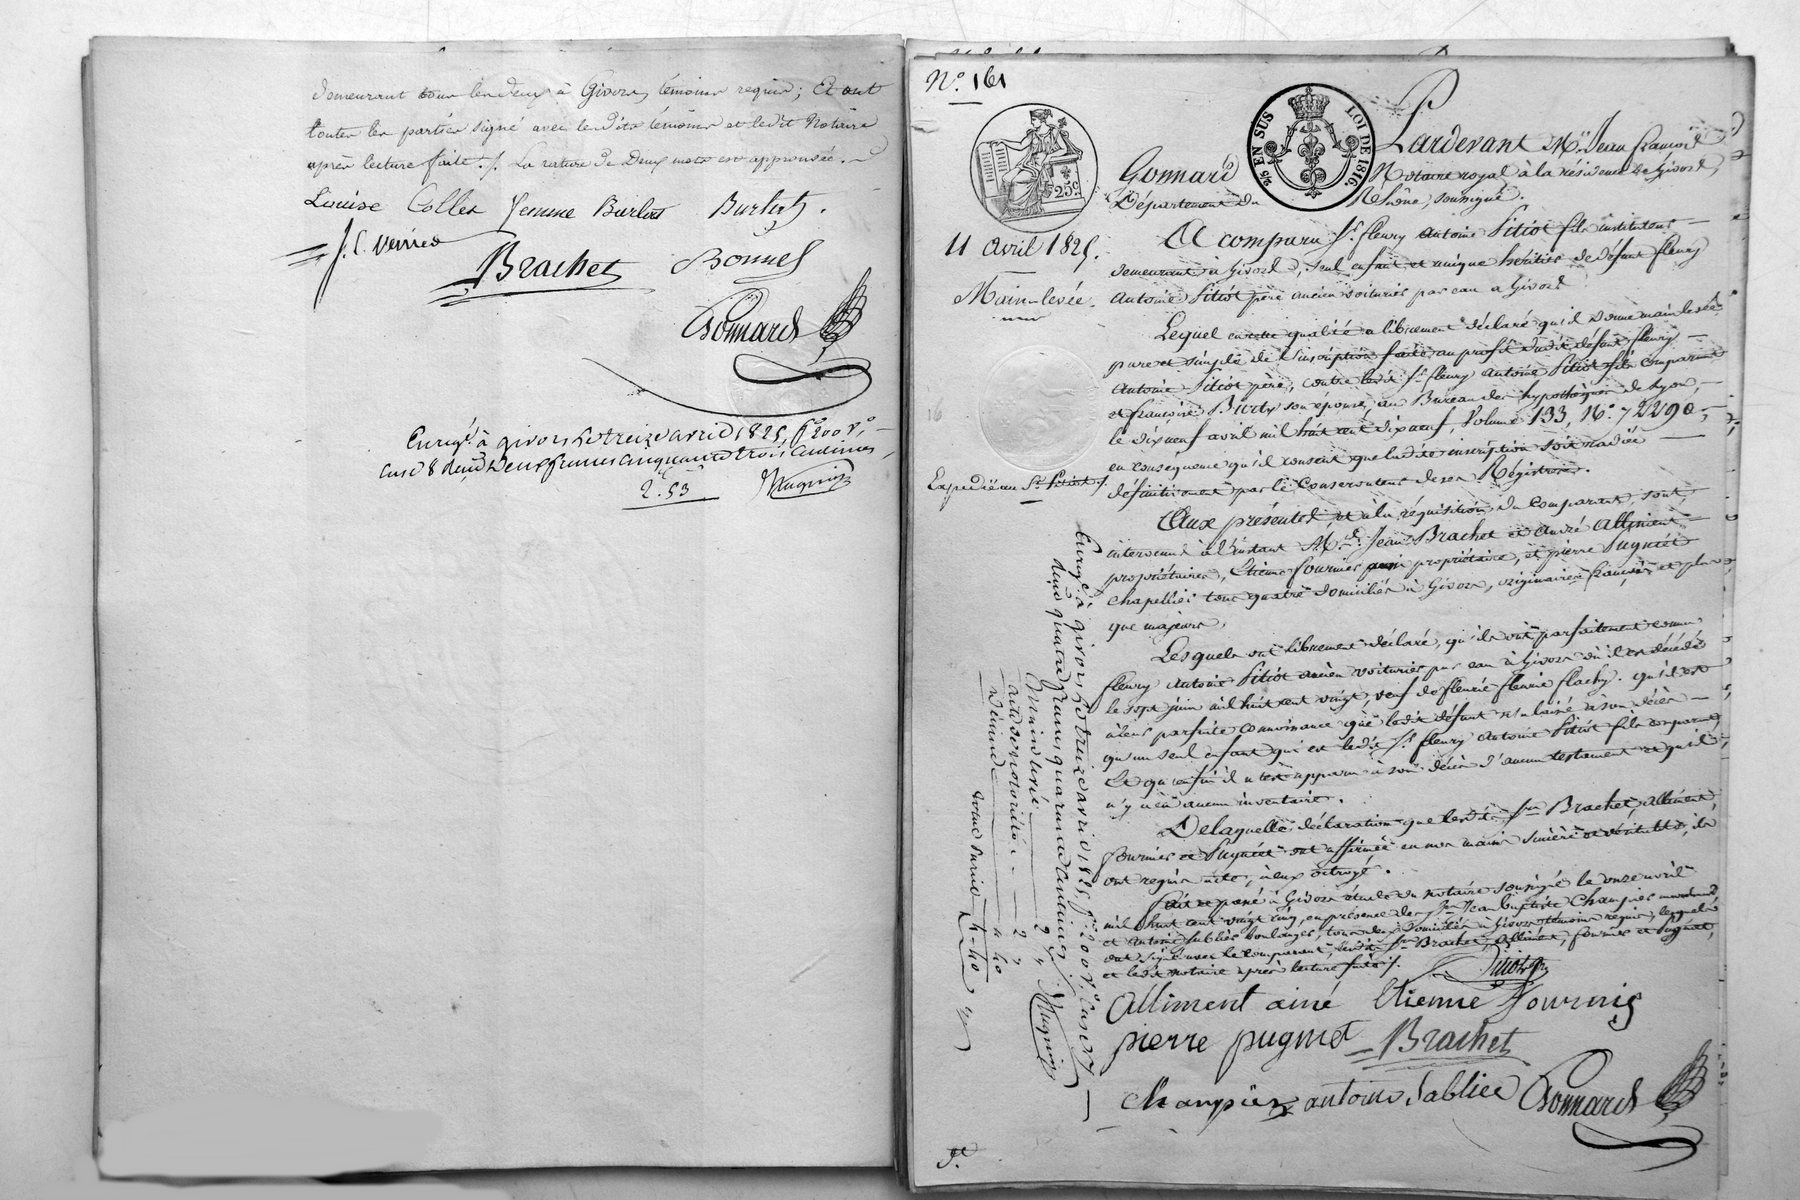 demeurant tous les deux à Givors, témoins requis; Et ont
toutes les parties signé avec lesdits témoins et ledit Notaire
après lecture faite ./. La rature de Deux mots est approuvée.
Louise Collet femme Burlat Burlat.
J. C. Verrier
Brachet Bonnel
Gonnard
Enreg.t à givors le treize avril 1825, f° 200 V°
case 8 reçu Deux francs cinquante trois centimes
2.53
N° 161
25 c.
EN SUS
LOI DE 1816.
11 avril 1825.
Main-levée.
Expédié au S.r Pitiot
Pardevant M.e Jean françois
Gonnard Notaire royal à la résidence de Givors,
Département du Rhône, soussigné.
A comparu S.r fleury Antoine Pitiot fils instituteur
demeurant à Givors, seul enfant et unique héritier de défunt fleury
Antoine Pitiot père ancien voiturier par eau à Givors
Lequel en cette qualité a librement déclaré qu'il donne mainlevée
pure et simple de l'inscription faite au profit dudit défunt fleury
Antoine Pitiot père, contre ledit S.r fleury Antoine Pitiot fils comparant
et françoise Burty son épouse, au Bureau des hypothèques de Lyon,
le dix neuf avril mil huit cent dix neuf, Volume 133, N°
en conséquence qu'il consent que ladite inscription soit radiée
définitivement par le Conservateur de ses Régistres.
Aux présentes et à la réquisition du Comparant, sont
intervenus à l'instant M.rs Jean Brachet et André Alliment
propriétaires, Etienne fournier propriétaire, et pierre Pugniet
chapellier tous quatre domiciliés à Givors, originaires français et plus
que majeurs.
Lesquels ont librement déclaré, qu'ils ont parfaitement connu
fleury Antoine Pitiot ancien voiturier par eau à Givors où il est décédé
le sept juin mil huit cent vingt, veuf de fleurie flachy. qu'il est
à leur parfaite connoissance que ledit défunt n'a laissé à son décès
qu'un seul enfant qui est ledit S.r fleury Antoine Pitiot fils comparant,
Et qu'enfin il n'est apparu à son décès d'aucun testament et qu'il
n'y a eu aucun inventaire.
De laquelle déclaration que lesdits S.rs Brachet, Alliment,
fournier et Pugniet ont affirmée en nos mains sincère et véritable, ils
ont requis acte, à eux octroyé.
fait et passé à Givors étude du notaire soussigné le onze avril
mil huit cent vingt cinq, en présence de S.rs Jean baptiste Champier
et Antoine Sablier boulanger, tous deux domiciliés à Givors témoins requis, lesquels
ont signé avec le comparant, lesdits S.rs Brachet, Alliment, fournier et Pugniet,
et ledit notaire après lecture faite ./.
Alliment ainé Etienne fournier
pierre pugniet Brachet
Champier antoine Sablier Gonnard
Enreg.t à givors le treize avril 1825, f° 200 V° Case 7
reçu quatre francs quarante centimes
Main levée 2 "
acte de notoriété 2 "
décime " 40
4-40